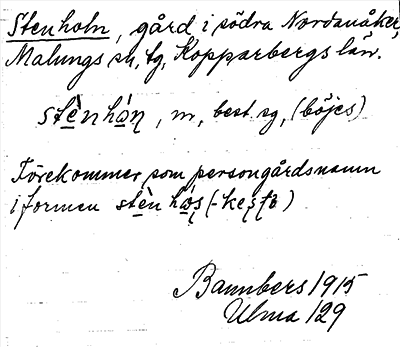 Stenholn, gård i södra Nordanåker,
Malungs sn, tg, Kopparbergs län.
stènhòɳ, m, best. sg, (böjes)
Förekommer som persongårdsnamn
i formen stèn hòʂ (-keʂʈò)
Bannbers 1915
Ulma 129